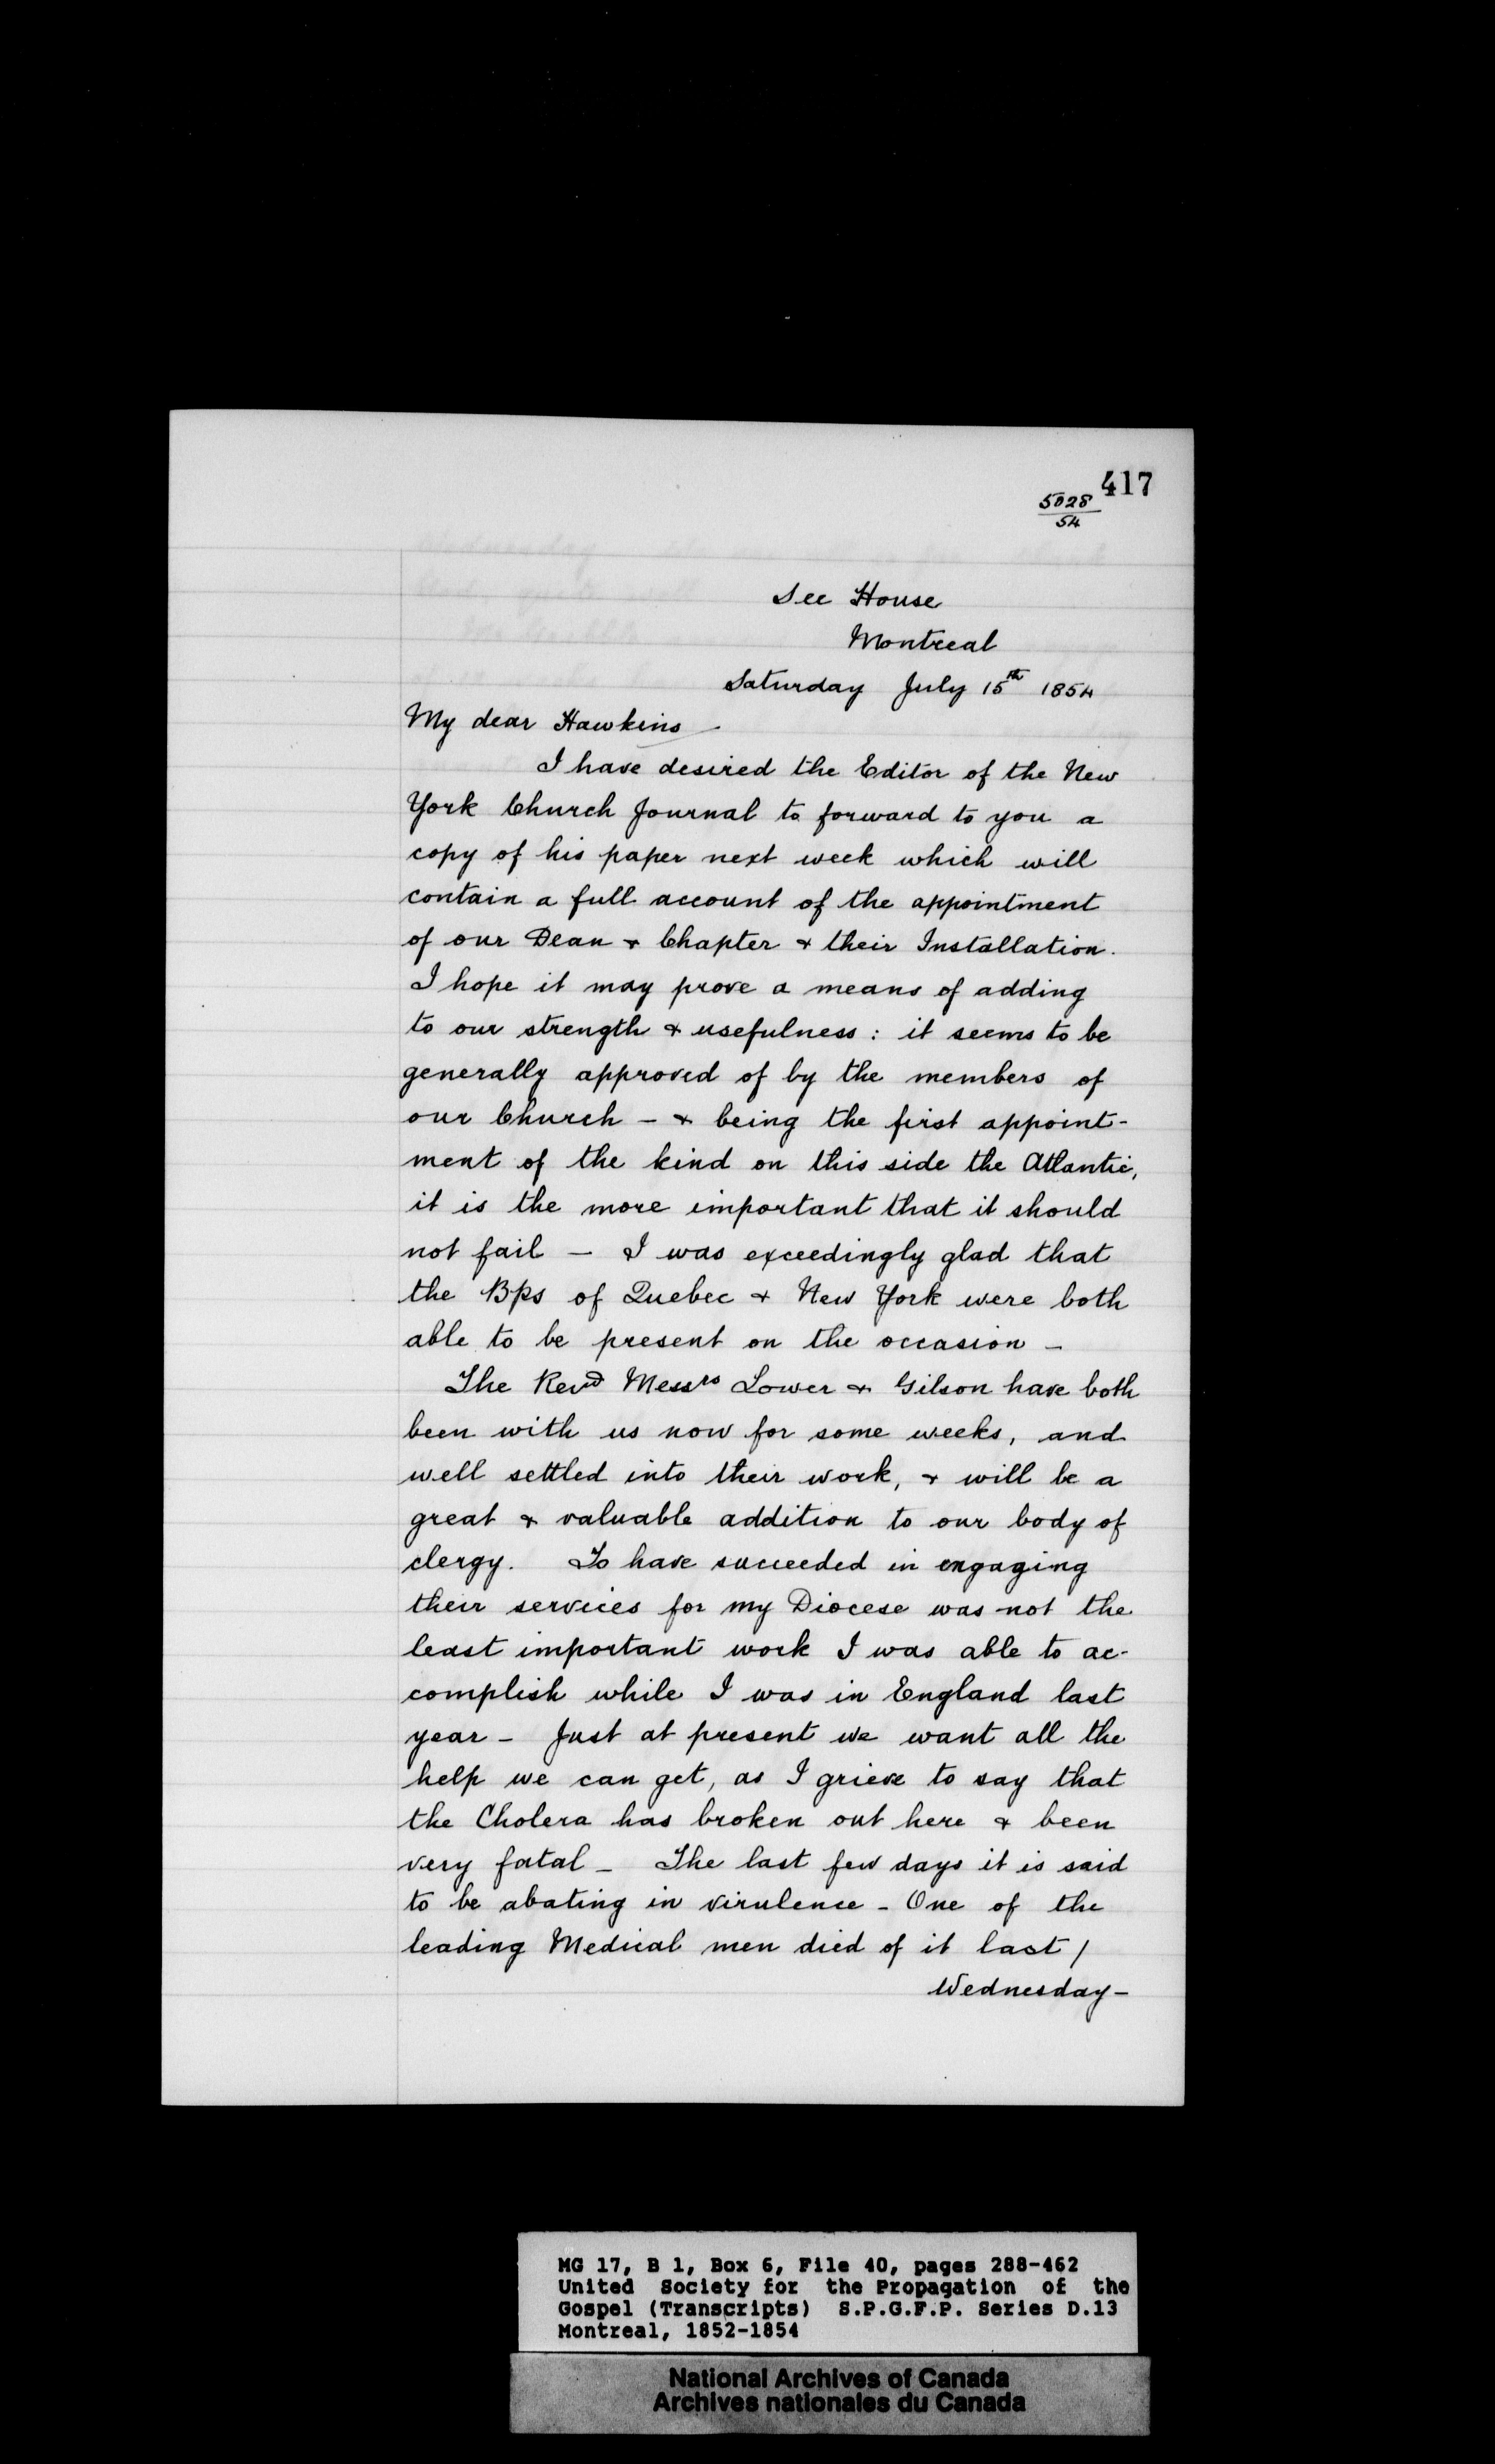 417
5028
54
See House
Montreal
Saturday July 15th 1854
My dear Hawkins
I have desired the Editor of the New
York Church Journal to forward to you a
copy of his paper next week which will
contain a full account of the appointment
of our Dean & Chapter & their Installation.
I hope it may prove a means of adding
to our strength & usefulness : it seems to be
generally approved of by the members of
our Church - & being the first appoint-
ment of the kind on this side the Atlantic,
it is the more important that it should
not fail - I was exceedingly glad that
the Bps of Quebec & New York were both
able to be present on the occasion -
The Revd Messrs Lower & Gilson have both
been with us now for some weeks, and
well settled into their work, & will be a
great & valuable addition to our body of
clergy. To have succeeded in engaging
their services for my Diocese was not the
least important work I was able to ac-
complish while I was in England last
year - Just at present we want all the
help we can get, as I grieve to say that
the Cholera has broken out here & been
very fatal - The last few days it is said
to be abating in virulence - One of the
leading Medical men died of it last /
Wednesday -
MG 17, B 1, Box 6, File 40, pages 288-462
United Society for the Propagation of the
Gospel (Transcripts) S.P.G.F.P. Series D.13
Montreal, 1852-1854
National Archives of Canada
Archives nationales du Canada